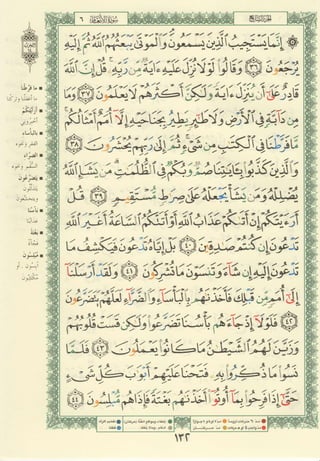 الجزء السابع
سورة الأنعام ٦
۞ إِنَّمَا يَسْتَجِيبُ ٱلَّذِينَ يَسْمَعُونَ ۘ وَٱلْمَوْتَىٰ يَبْعَثُهُمُ ٱللَّهُ ثُمَّ إِلَيْهِ
يُرْجَعُونَ ٣٦ وَقَالُوا۟ لَوْلَا نُزِّلَ عَلَيْهِ ءَايَةٌ مِّن رَّبِّهِۦ ۚ قُلْ إِنَّ ٱللَّهَ
قَادِرٌ عَلَىٰٓ أَن يُنَزِّلَ ءَايَةً وَلَٰكِنَّ أَكْثَرَهُمْ لَا يَعْلَمُونَ ٣٧ وَمَا
مِن دَآبَّةٍ فِى ٱلْأَرْضِ وَلَا طَٰٓئِرٍ يَطِيرُ بِجَنَاحَيْهِ إِلَّآ أُمَمٌ أَمْثَالُكُم ۚ
مَّا فَرَّطْنَا فِى ٱلْكِتَٰبِ مِن شَىْءٍ ۚ ثُمَّ إِلَىٰ رَبِّهِمْ يُحْشَرُونَ ٣٨
وَٱلَّذِينَ كَذَّبُوا۟ بِـَٔايَٰتِنَا صُمٌّ وَبُكْمٌ فِى ٱلظُّلُمَٰتِ ۗ مَن يَشَإِ ٱللَّهُ
يُضْلِلْهُ وَمَن يَشَأْ يَجْعَلْهُ عَلَىٰ صِرَٰطٍ مُّسْتَقِيمٍ ٣٩ قُلْ
أَرَءَيْتَكُمْ إِنْ أَتَىٰكُمْ عَذَابُ ٱللَّهِ أَوْ أَتَتْكُمُ ٱلسَّاعَةُ أَغَيْرَ ٱللَّهِ
تَدْعُونَ إِن كُنتُمْ صَٰدِقِينَ ٤٠ بَلْ إِيَّاهُ تَدْعُونَ فَيَكْشِفُ مَا
تَدْعُونَ إِلَيْهِ إِن شَآءَ وَتَنسَوْنَ مَا تُشْرِكُونَ ٤١ وَلَقَدْ أَرْسَلْنَآ
إِلَىٰٓ أُمَمٍ مِّن قَبْلِكَ فَأَخَذْنَٰهُم بِٱلْبَأْسَآءِ وَٱلضَّرَّآءِ لَعَلَّهُمْ يَتَضَرَّعُونَ
٤٢ فَلَوْلَآ إِذْ جَآءَهُم بَأْسُنَا تَضَرَّعُوا۟ وَلَٰكِن قَسَتْ قُلُوبُهُمْ
وَزَيَّنَ لَهُمُ ٱلشَّيْطَٰنُ مَا كَانُوا۟ يَعْمَلُونَ ٤٣ فَلَمَّا
نَسُوا۟ مَا ذُكِّرُوا۟ بِهِۦ فَتَحْنَا عَلَيْهِمْ أَبْوَٰبَ كُلِّ شَىْءٍ
حَتَّىٰٓ إِذَا فَرِحُوا۟ بِمَآ أُوتُوٓا۟ أَخَذْنَٰهُم بَغْتَةً فَإِذَا هُم مُّبْلِسُونَ ٤٤
ما فرّطنا
أرأيتكم
بالبأساء
الضرّاء
يتضرّعون
بأسنا
بغتة
مبلسون
١٣٢